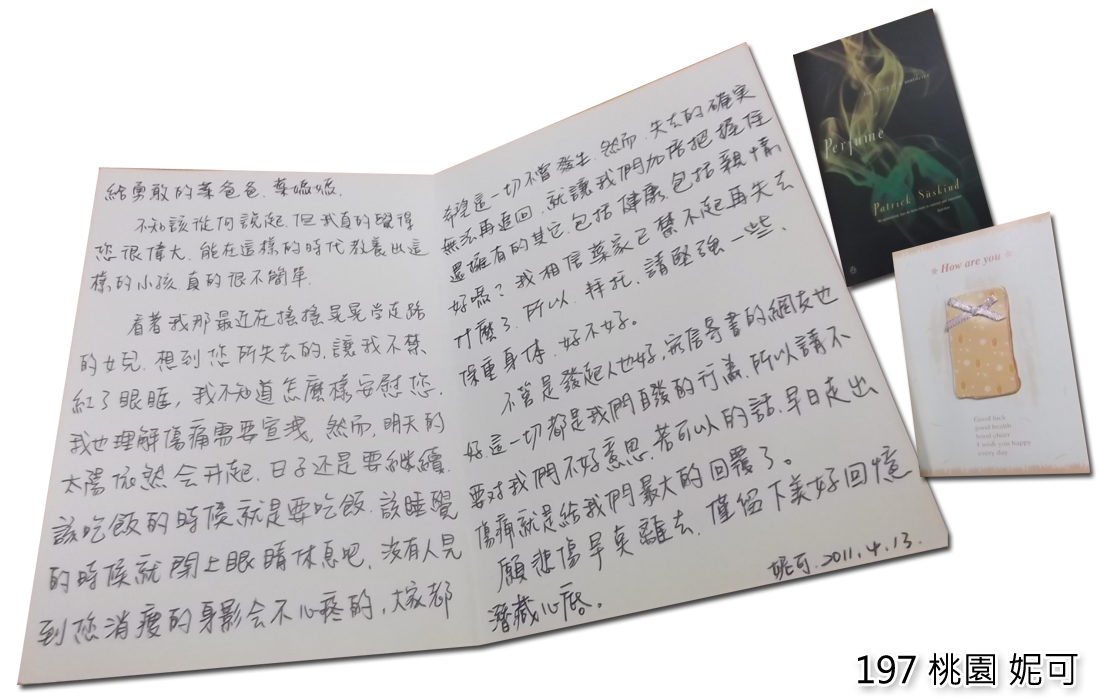 給勇敢的葉爸爸.葉媽媽.
不知該從何說起.但我真的覺得
您很偉大.能在這樣的時代教養出這
樣的小孩真的很不簡單.
看著我那最近在搖搖晃晃学走路
的女兒.想到您所失去的.讓我不禁
紅了眼眶,我不知道怎麼樣安慰您.
我也理解傷痛需要宣洩,然而,明天的
太陽依然会升起.日子还是要継續.
該吃飯的時候就是要吃飯.該睡覺
的時候就閉上眼睛休息吧.沒有人見
到您消瘦的身影会不心疼的,大家都
希望這一切不曾發生.然而.失去的確実
無法再追回.就讓我們加倍把握住
還擁有的其它.包括健康.包括親情
好嗎?我相信葉家已禁不起再失去
什麼了.所以.拜托.請堅強一些.
保重身体.好不好。
不管是發起人也好.寫信寄書的網友也
好這一切都是我們自發的行為.所以請不
要對我們不好意思.若可以的話.早日走出
傷痛就是給我們最大的回覆了。
願悲傷早臾離去.僅留下美好回憶
潛藏心底。
妮可.2011.4.13.
Perfume
Patrick Süskind
How are you
Good luck
good health
good cheer
I wish you happy
every day
197 桃園 妮可